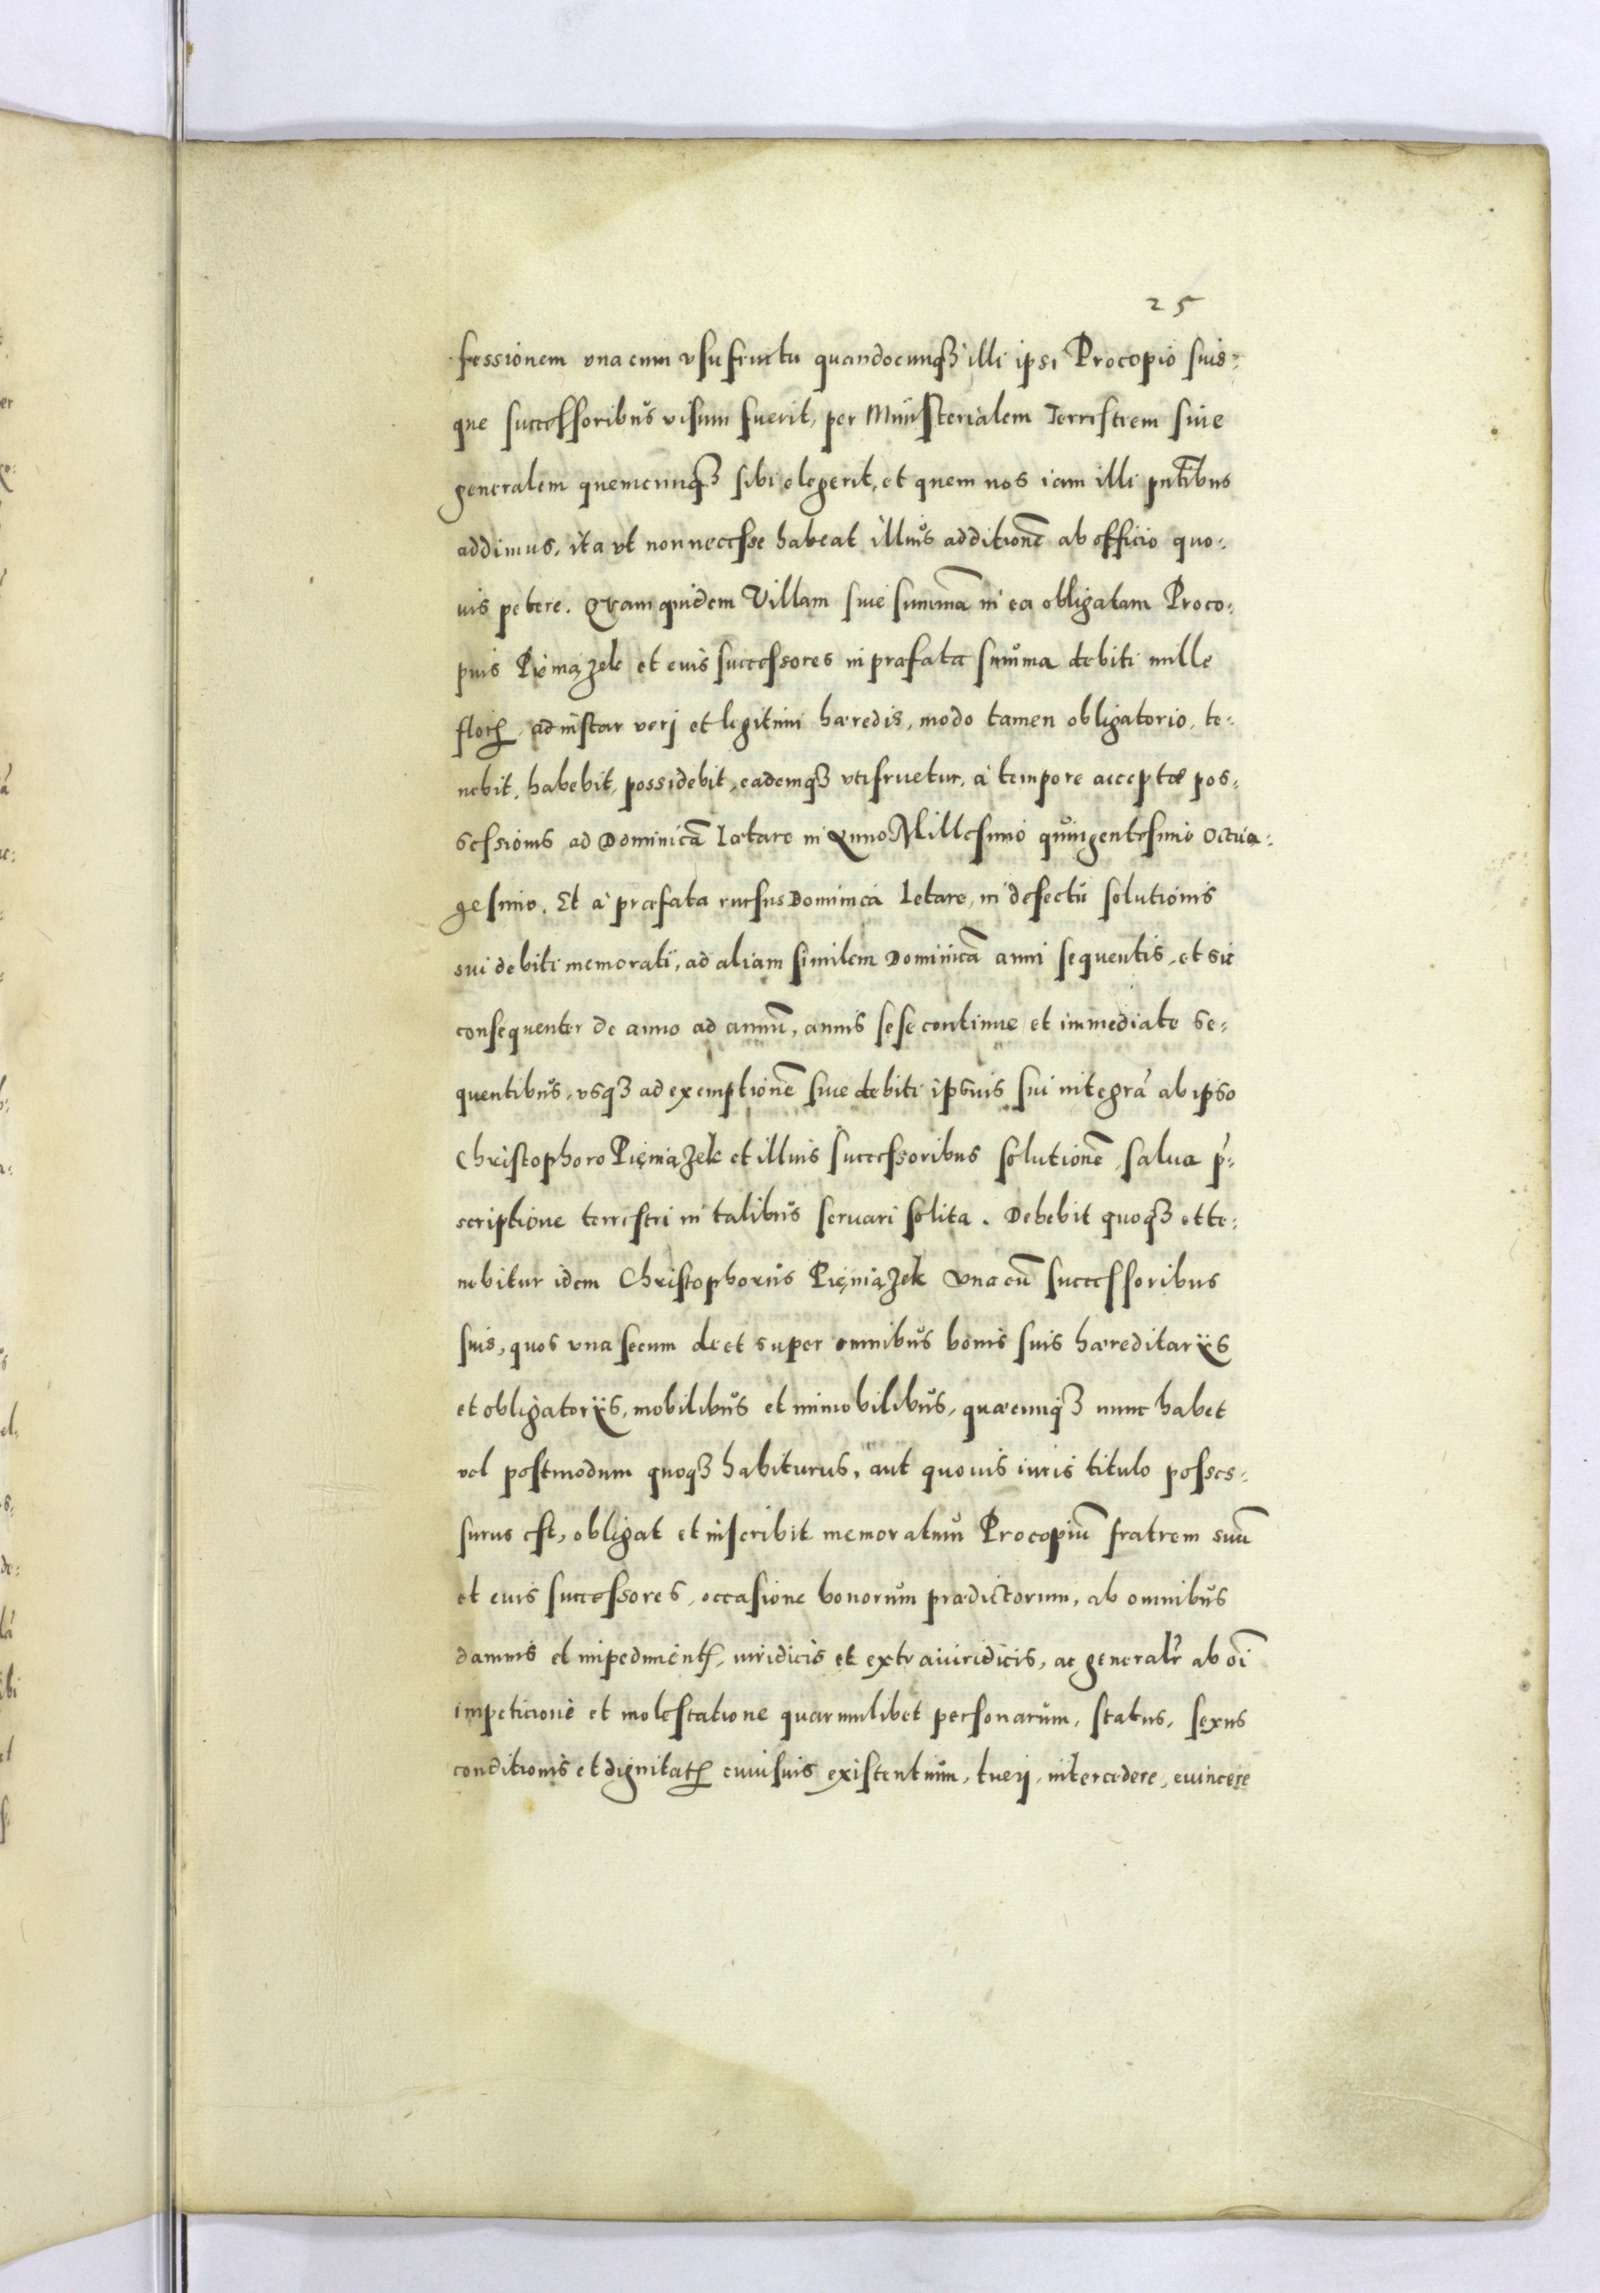 25
sessionem vna cum vsufructu quandocunqꝫ illi ipsi Procopio suis-
que successoribus visum fuerit, per Ministerialem Terrestrem siue
generalem quemcunqꝫ sibi elegerit, et quem nos iam illi pntibus
addimus, ita vt non necesse habeat illius additionē ab officio quo-
uis petere. Quam quidem Villam siue summā in ea obligatam Proco-
pius Pieniązek et eius successores in præfata summa debiti mille
floꝝ, ad instar veri et legitimi hæredis, modo tamen obligatorio, te-
nebit, habebit, possidebit, eademqꝫ vtifruetur, à tempore acceptæ pos-
sessionis ad Dominicā Lætare in Anno Millesimo quingentesimo octua-
gesimo. Et à præfata rursus Dominica Letare, in defectu solutionis
sui debiti memorati, ad aliam similem Dominicā anni sequentis, et sic
consequenter de anno ad annū, annis sese continue et immediate se-
quentibus, vsqꝫ ad exemptionē siue debiti ipsius sui integrā ab ipso
Christophoro Pięniązek et illius successoribus solutionē, salua p̄-
scriptione terrestri in talibus seruari solita. Debebit quoqꝫ et te-
nebitur idem Christophorus Pięniązek vna cū successoribus
suis, quos vna secum de et super omnibus bonis suis hæreditarijs
et obligatorijs, mobilibus et immobilibus, quæcunqꝫ nunc habet
vel postmodum quoqꝫ habiturus, aut quouis iuris titulo posses-
surus est, obligat et inscribit memoratum Procopiū fratrem suū
et eius successores, occasione bonorum prædictorum, ab omnibus
damnis et impedimentꝭ, iuridicis et extraiuridicis, ac generalr ab oī
impeticione et molestatione quarumlibet personarum, status, sexus
conditionis et dignitatꝭ cuiusuis existentium, tueri, intercedere, euincere